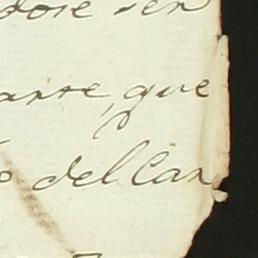 dose ven
ante, que
o del Can